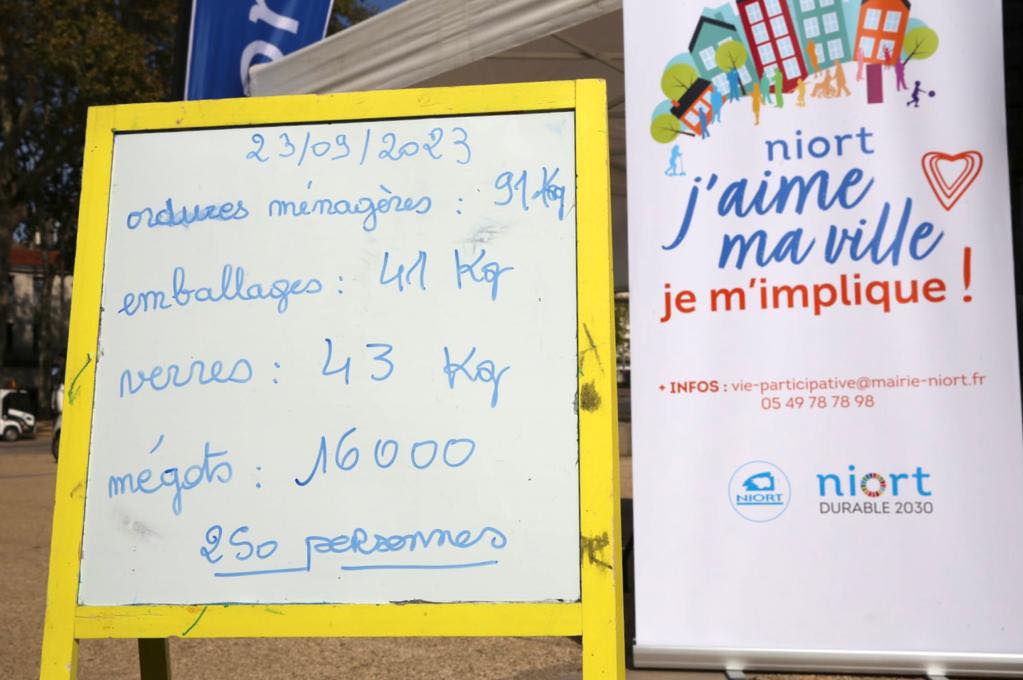 or
23/09/2023
ordures ménagères : 91 Kg
emballages : 41 Kg
verres : 43 Kg
mégots : 16000
250 personnes
niort
j'aime
ma ville
je m'implique !
+ INFOS : vie-participative@mairie-niort.fr
05 49 78 78 98
NIORT
niort
DURABLE 2030